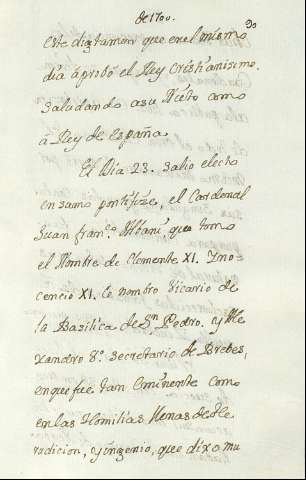 de 1700.
90
este dictamen que en el mismo
dia aprobó el Rey Cristianisimo.
saludando asu Nieto como
á Rey de España.
El Dia 23. salio electo
en sumo pontifize, el Cardenal
Juan fran.co Albani que tomo
el Nombre de Clemente XI. Ino=
cencio XI. le nombro Vicario de
la Basilica de Sn Pedro. y Ale
xandro 8.o secretario de Brebes,
en que fue tan eminente como
en las Homilias llenas de He
rudicion, y ingenio, que dixo mu